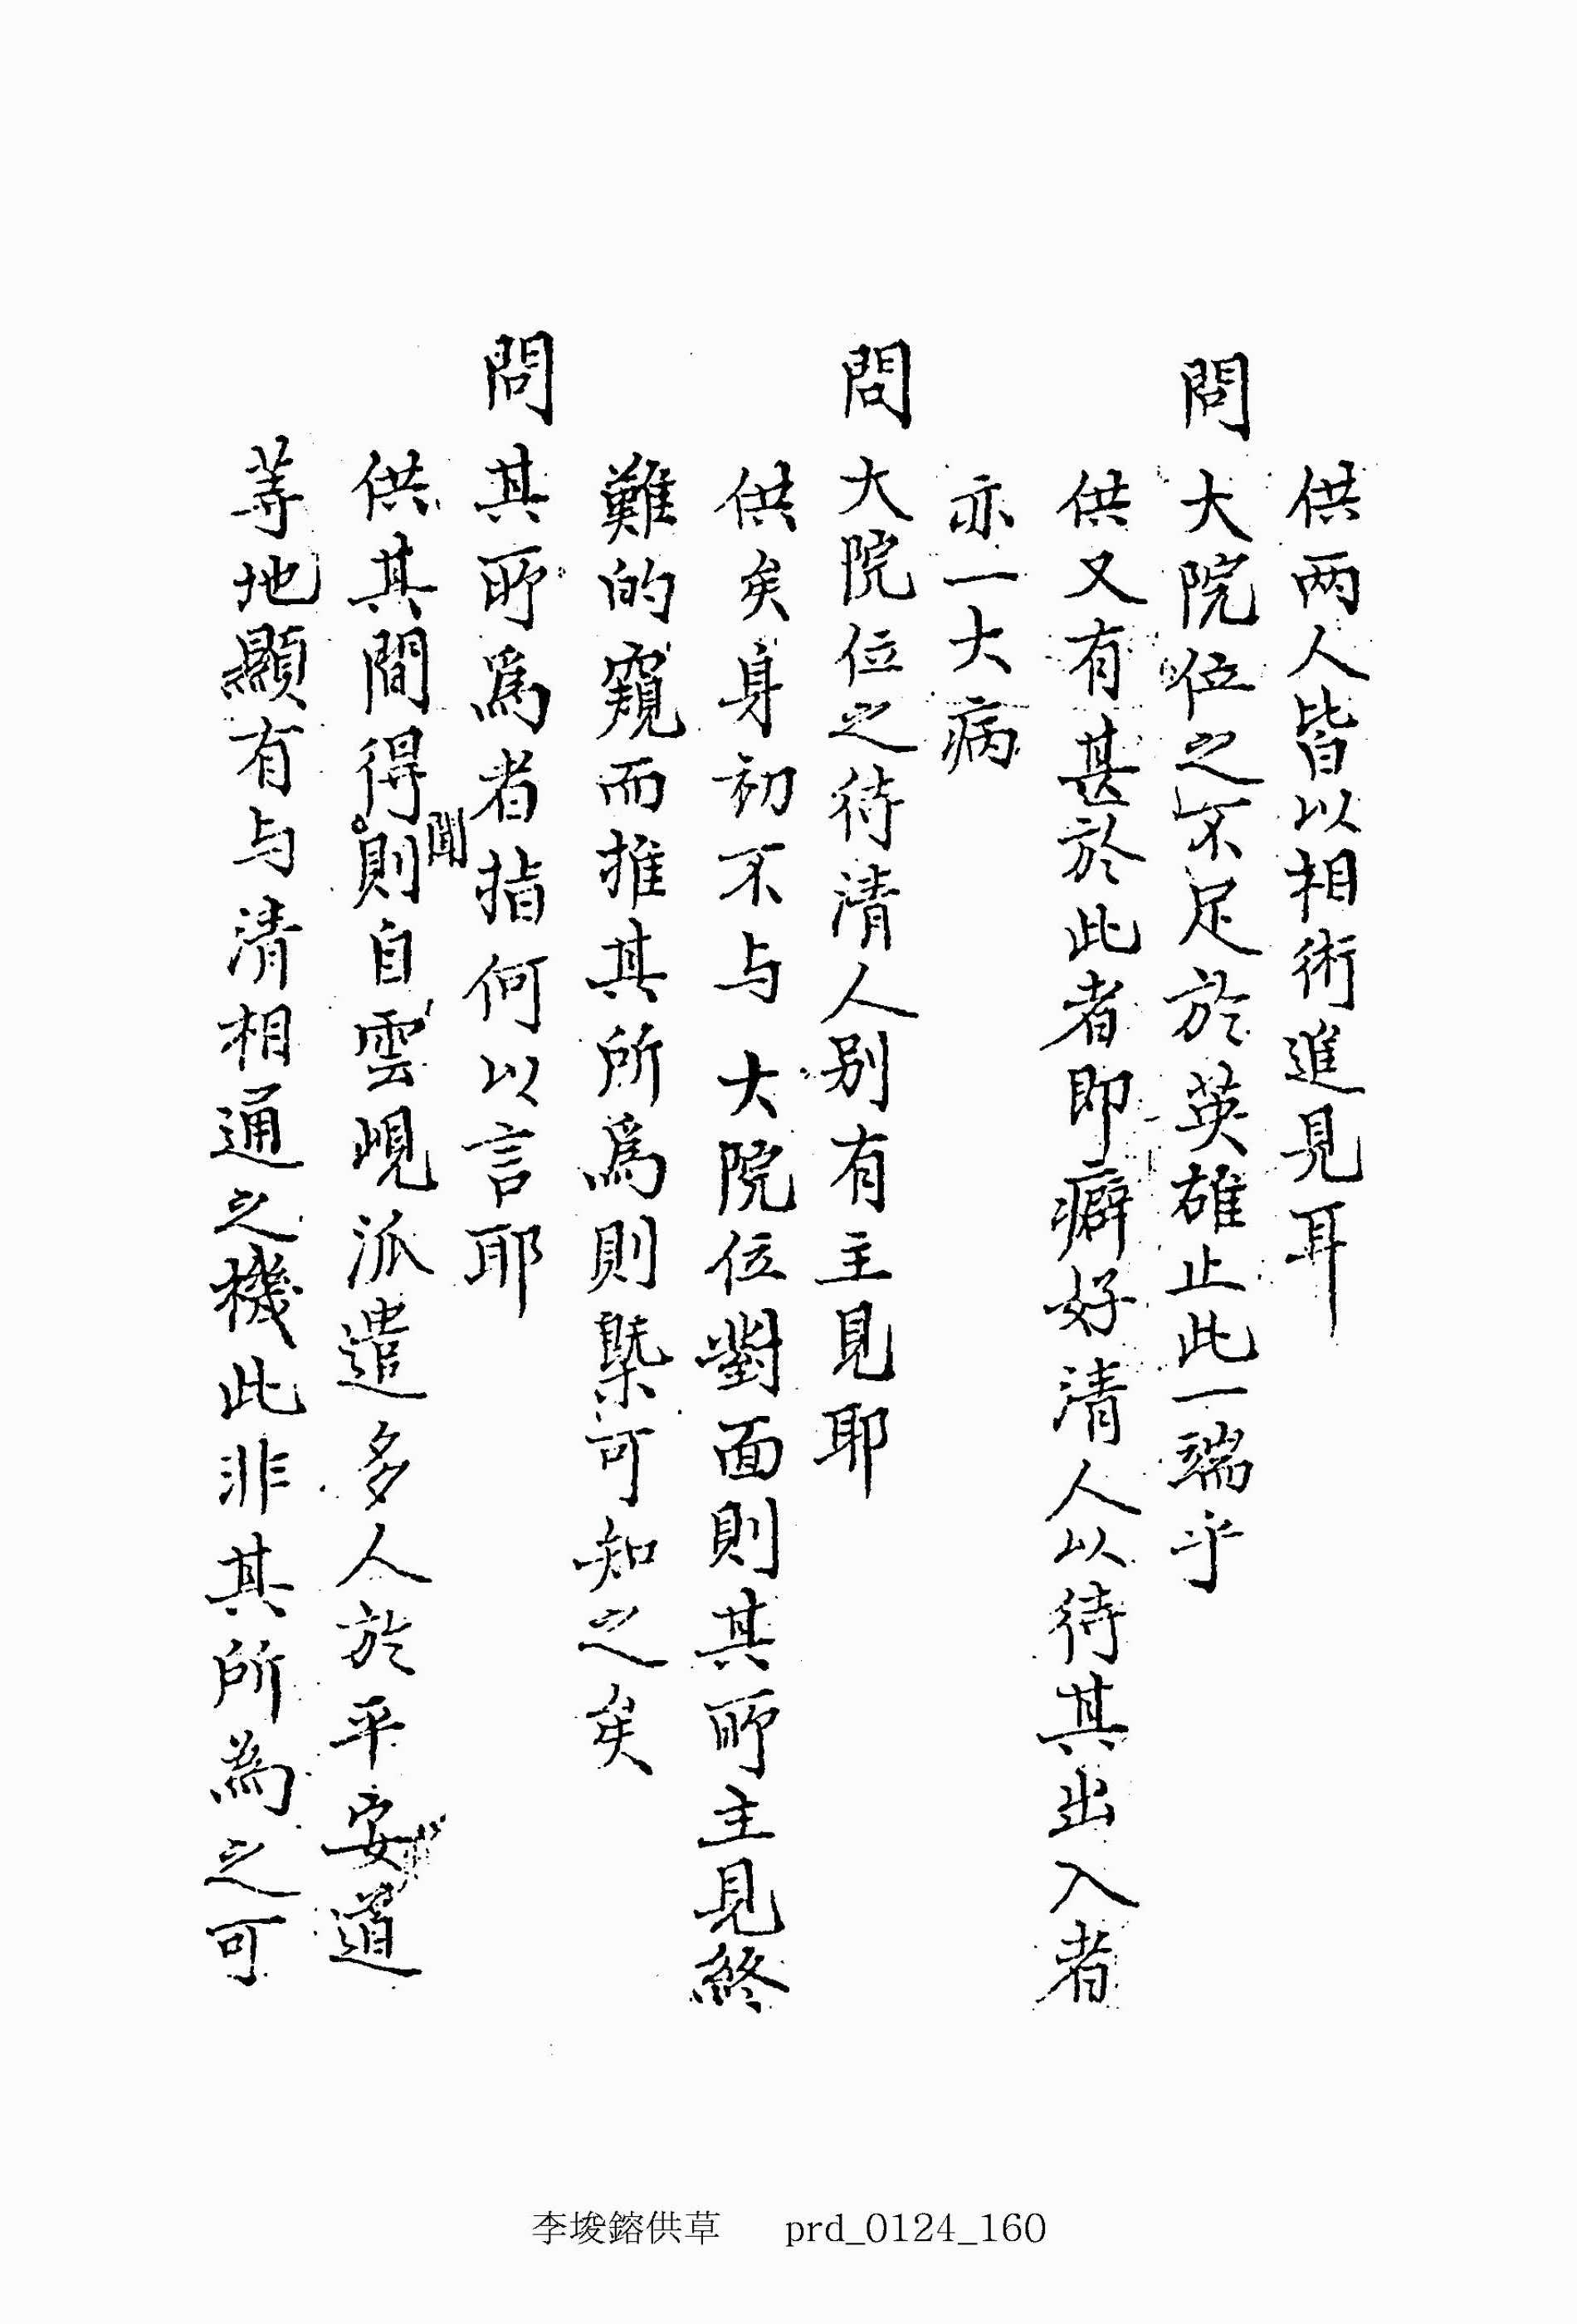 供两人皆以相術進見耳
問 大院位之不足於英雄止此一端乎
供又有甚於此者即癖好清人以待其出入者
亦一大病
問 大院位之待清人别有主見耶
供矣身初不与 大院位對面則其所主見終
難的窺而推其所爲則槩可知之矣
問 其所爲者指何以言耶
供其間得聞則自雲峴派遣多人於平安道
等地顯有与清相通之機此非其所為之可
李埈鎔供草 prd_0124_160